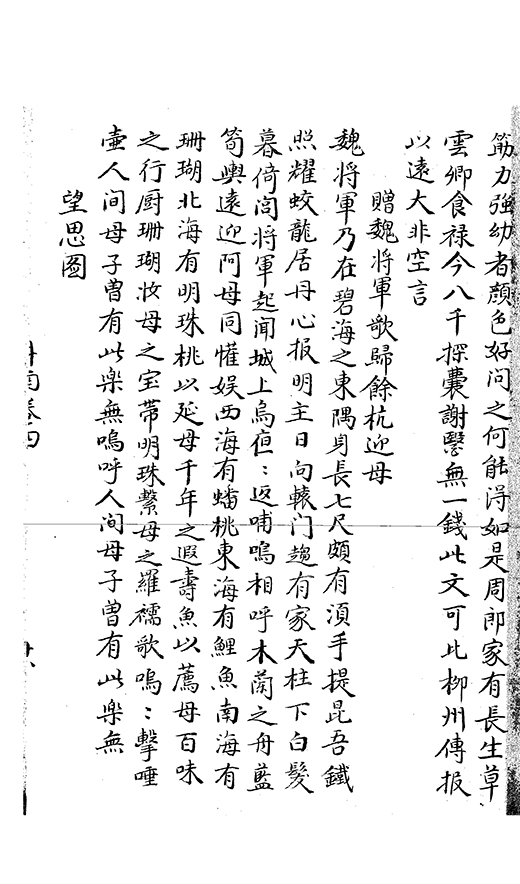 筋力強幼者顔色好問之何能淂如是周郎家有長生草
雲卿食禄今八千探囊謝醫無一錢此文可比柳州傳报
以遠大非空言
贈魏将軍歌歸餘杭迎母
魏将軍乃在碧海之東隅身長七尺頗有湏手提昆吾鐵
照耀蛟龍居丹心报明主日向轅门趨有家天柱下白髮
暮倚闾将軍起闻城上烏侸〻返哺鳴相呼木蘭之舟藍
筍輿遠迎阿母同懽娱西海有蟠桃東海有鯉魚南海有
珊瑚北海有明珠桃以延母千年之遐壽魚以薦母百味
之行厨珊瑚妝母之宝帶明珠繫母之羅襦歌嗚〻擊唾
壷人间母子曽有此樂無嗚呼人间母子曽有此樂無
望思圖
卷四